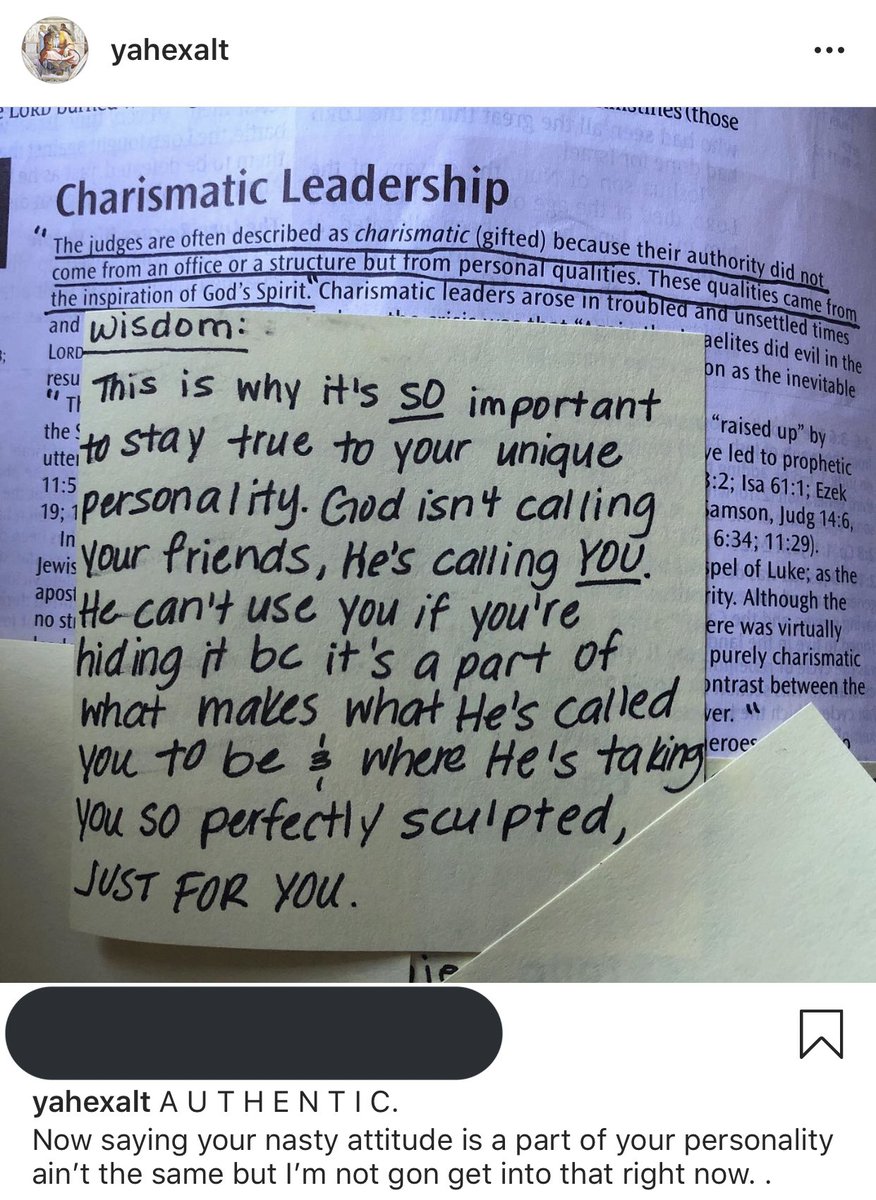 yahexalt
LORD
(those
Charismatic Leadership
"The judges are often described as charismatic (gifted) because their authority did not
come from an office or a structure but from personal qualities. These qualities came from
the inspiration of God's Spirit." Charismatic leaders arose in troubled and unsettled times
and
aelites did evil in the
LORD
on as the inevitable
resu
wisdom:
This is why it's SO important
to stay true to your unique
personality. God isn't calling
your friends, He's calling YOU.
He can't use you if you're
hiding it bc it's a part of
what makes what He's called
you to be & where He's taking
you so perfectly sculpted,
JUST FOR YOU.
"Th
the S
utter
11:5
19; 1
In
Jewis
apost
no sti
"raised up" by
ve led to prophetic
3:2; Isa 61:1; Ezek
amson, Judg 14:6,
6:34; 11:29).
spel of Luke; as the
rity. Although the
ere was virtually
purely charismatic
ontrast between the
ver. "
eroes
lie
yahexalt A U T H E N T I C.
Now saying your nasty attitude is a part of your personality
ain't the same but I'm not gon get into that right now. .